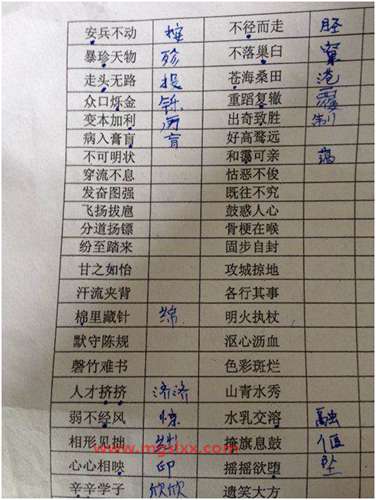 安兵不动 不径而走 胫
暴珍天物 殄 不落巢臼 窠
走头无路 投 苍海桑田 沧
众口烁金 铄 重蹈复辙 覆
变本加利 厉 出奇致胜 制
病入膏肓 肓 好高骛远
不可明状 和霭可亲 蔼
穿流不息 怙恶不俊
发奋图强 既往不究
飞扬拔扈 鼓惑人心
分道扬镖 骨梗在喉
纷至踏来 固步自封
甘之如怡 攻城掠地
汗流夹背 各行其事
棉里藏针 绵 明火执杖
默守陈规 沤心沥血
磬竹难书 色彩斑烂
人才挤挤 济济 山青水秀
弱不经风 惊 水乳交溶 融
相形见拙 掩旗息鼓 偃
心心相映 印 摇摇欲堕 坠
辛辛学子 欣欣 遗笑大方
www.mgslxx.com